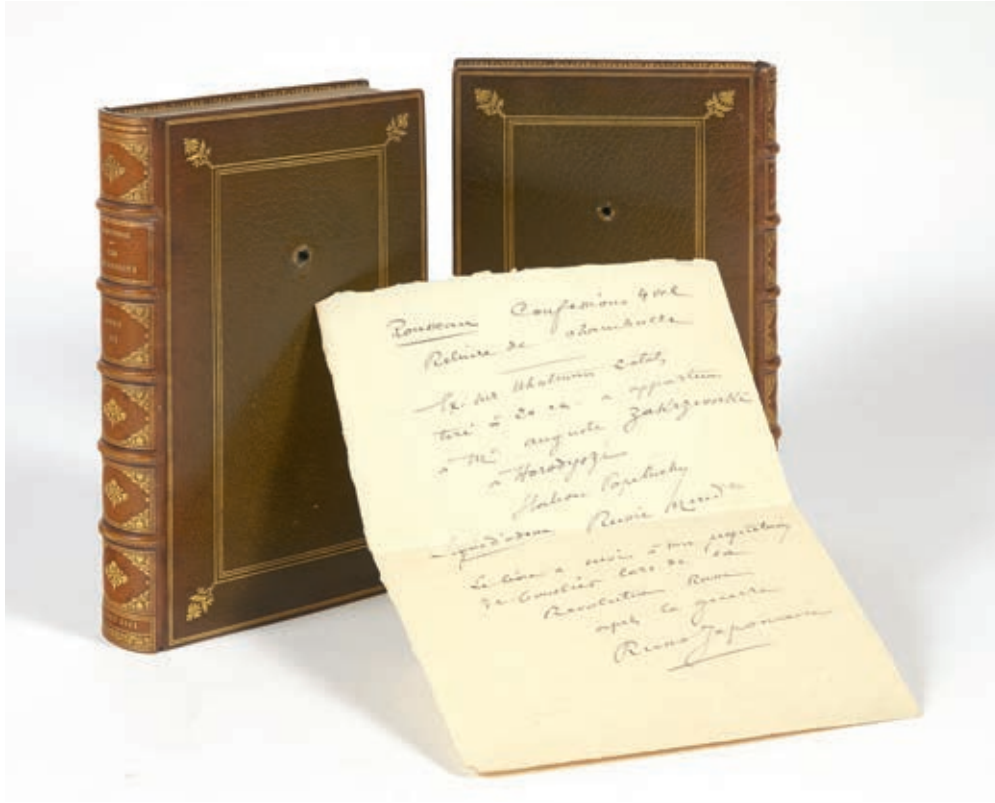 Rousseau Confessions 4 vol
Reliure de Chambolle
Ex. sur Whatman
tiré à 20 ex. a appartenu
à Mr Auguste Zakrzewski
à
Station Popeluchy
Ligne d'Odessa Russie
Le livre a servi à son propriétaire
de bouclier lors de la
Revolution Russe
après la guerre
Russo Japonaise
LES